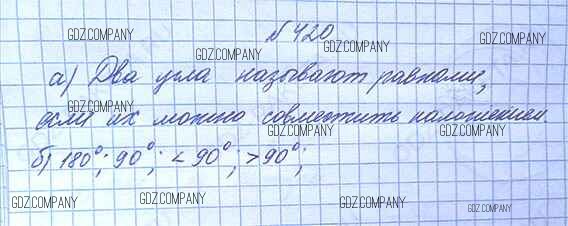 №420
GDZ.COMPANY GDZ.COMPANY GDZ.COMPANY GDZ.COMPANY
а) Два угла называют равными,
GDZ.COMPANY
если их можно совместить наложением.
GDZ.COMPANY GDZ.COMPANY GDZ.COMPANY
б) 180°; 90°; < 90°; > 90°;
GDZ.COMPANY GDZ.COMPANY GDZ.COMPANY GDZ.COMPANY